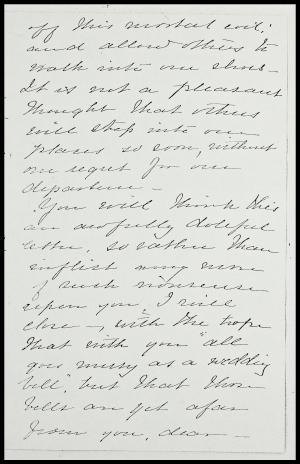 off this mortal coil,
and allow others to
walk into our shoes -
It is not a pleasant
thought that others
will step into our
places so soon, without
one regret for our
departure -
You will think this
an awfully doleful
letter, so rather than
inflict any more
of such nonsense
upon you, I will
close -, with the hope
that with you "all
goes merry as a wedding
bell", but that those
bells are yet afar
from you, dear -